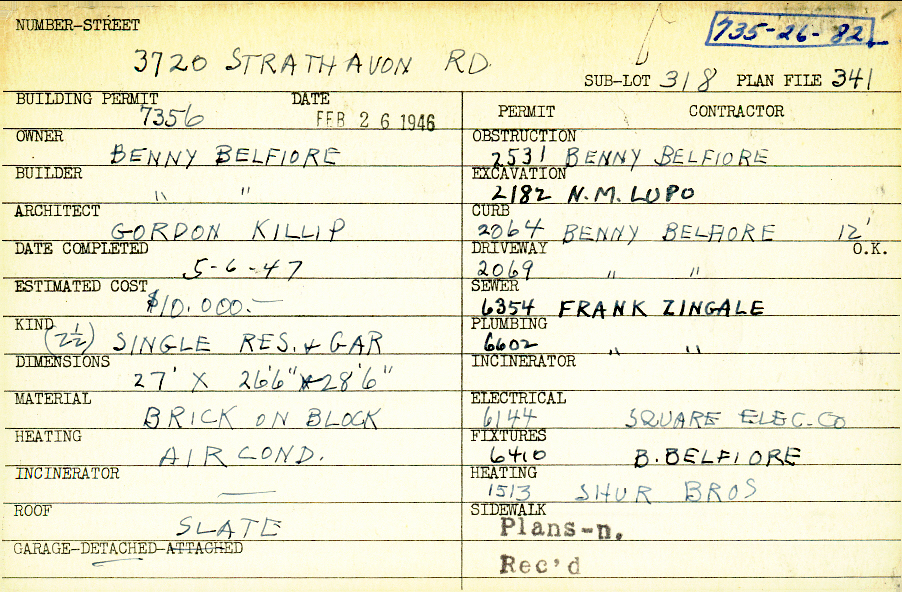 NUMBER-STREET
735-26-82
3720 STRATHAVON RD.
SUB-LOT 318 PLAN FILE 341
BUILDING PERMIT 7356 DATE FEB 26 1946
OWNER BENNY BELFIORE
BUILDER " "
ARCHITECT GORDON KILLIP
DATE COMPLETED 5-6-47
ESTIMATED COST $10.000.—
KIND (2½) SINGLE RES. & GAR
DIMENSIONS 27' X 26'6" x 28'6"
MATERIAL BRICK ON BLOCK
HEATING AIR COND.
INCINERATOR —
ROOF SLATE
GARAGE-DETACHED-ATTACHED
PERMIT CONTRACTOR
OBSTRUCTION
2531 BENNY BELFIORE
EXCAVATION
2182 N.M. LUPO
CURB
2064 BENNY BELFIORE 12'
DRIVEWAY O.K.
2069 " "
SEWER
6354 FRANK ZINGALE
PLUMBING
6602 " "
INCINERATOR
ELECTRICAL
6144 SQUARE ELEC. CO
FIXTURES
6410 B. BELFIORE
HEATING
1513 SHUR BROS
SIDEWALK
Plans-n.
Rec'd